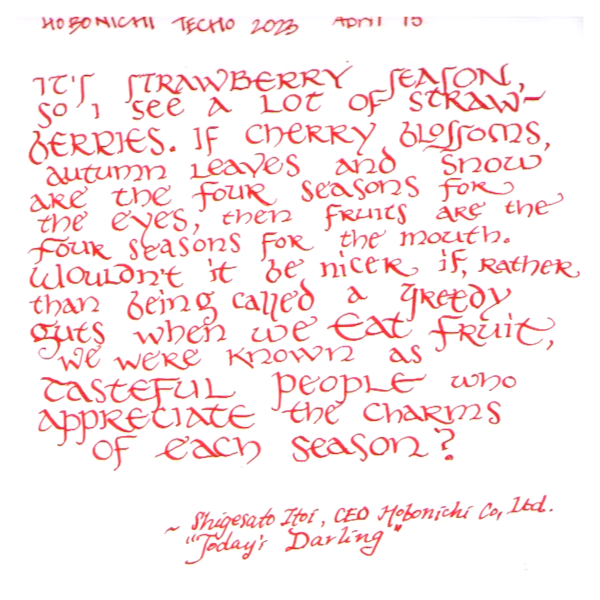 HOBONICHI TECHO 2023 APRIL 15
IT'S STRAWBERRY SEASON,
SO I SEE A LOT OF STRAW-
BERRIES. IF CHERRY BLOSSOMS,
AUTUMN LEAVES AND SNOW
ARE THE FOUR SEASONS FOR
THE EYES, THEN FRUITS ARE THE
FOUR SEASONS FOR THE MOUTH.
WOULDN'T IT BE NICER IF, RATHER
THAN BEING CALLED A GREEDY
GUTS WHEN WE EAT FRUIT,
WE WERE KNOWN AS
TASTEFUL PEOPLE WHO
APPRECIATE THE CHARMS
OF EACH SEASON?
~ Shigesato Itoi, CEO Hobonichi Co, Ltd.
"Today's Darling"